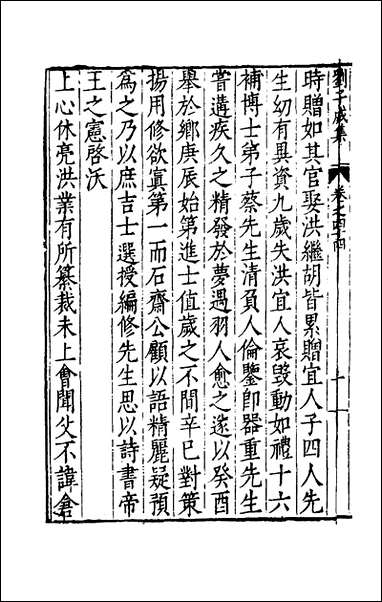 劉子威集 卷之四十四 十一
時贈如其官娶洪繼胡皆累贈宜人子四人先
生幼有異資九歲失洪宜人哀毀動如禮十六
補博士弟子蔡先生清負人倫鑒卽器重先生
甞遘疾久之精發於夢遇羽人愈之遂以癸酉
舉於鄉庚辰始第進士值歲之不間辛巳對策
揚用修欲寘第一而石齋公顧以語精麗疑預
爲之乃以庶吉士選授編修先生思以詩書帝
王之憲啓沃
上心休亮洪業有所纂裁未上會聞父不諱倉